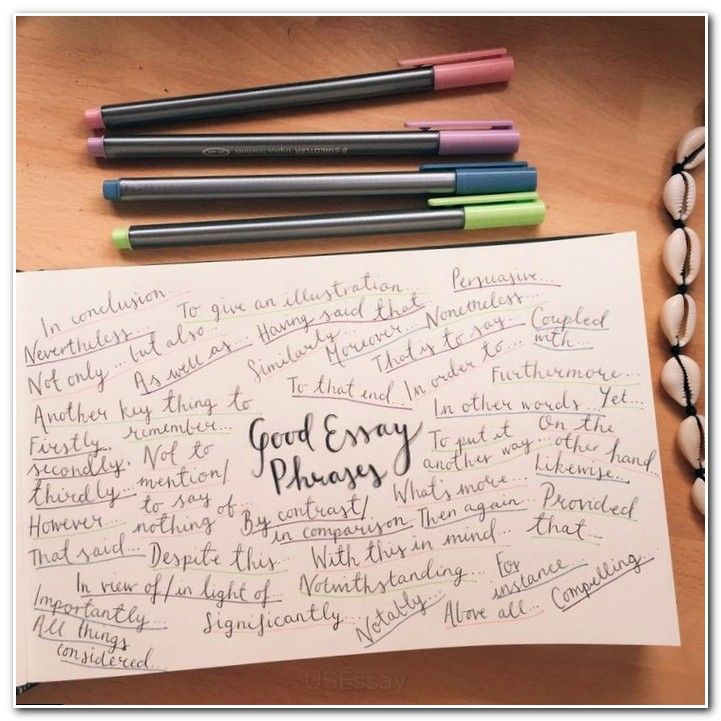 STAEDTLER triplus fineliner
In conclusion... To give an illustration... Persuasive...
Nevertheless... Having said that Nonetheless...
Not only... but also... As well as... Similarly... Moreover... That is to say... Coupled with...
To that end... In order to... Furthermore...
Another key thing to remember...
In other words... Yet...
Good Essay Phrases
Firstly, secondly, thirdly...
Not to mention/ to say nothing of...
To put it another way...
On the other hand
Likewise...
However...
By contrast/ in comparison
What's more...
Then again...
Provided that...
That said... Despite this... With this in mind...
In view of/in light of... Notwithstanding... For instance Compelling...
Importantly... Significantly... Notably... Above all...
All things considered...
USEssay